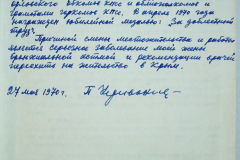 орловского обкома КПСС и облисполкома и
горкома КПСС. В апреле 1970 года
награжден юбилейной медалью: За доблестный
труд.
Причиной смены местожительства и работы
является серьезное заболевание моей жены
бронхиальной астмой и рекомендации врачей
переехать на жительство в Крым.
27 мая 1970г.